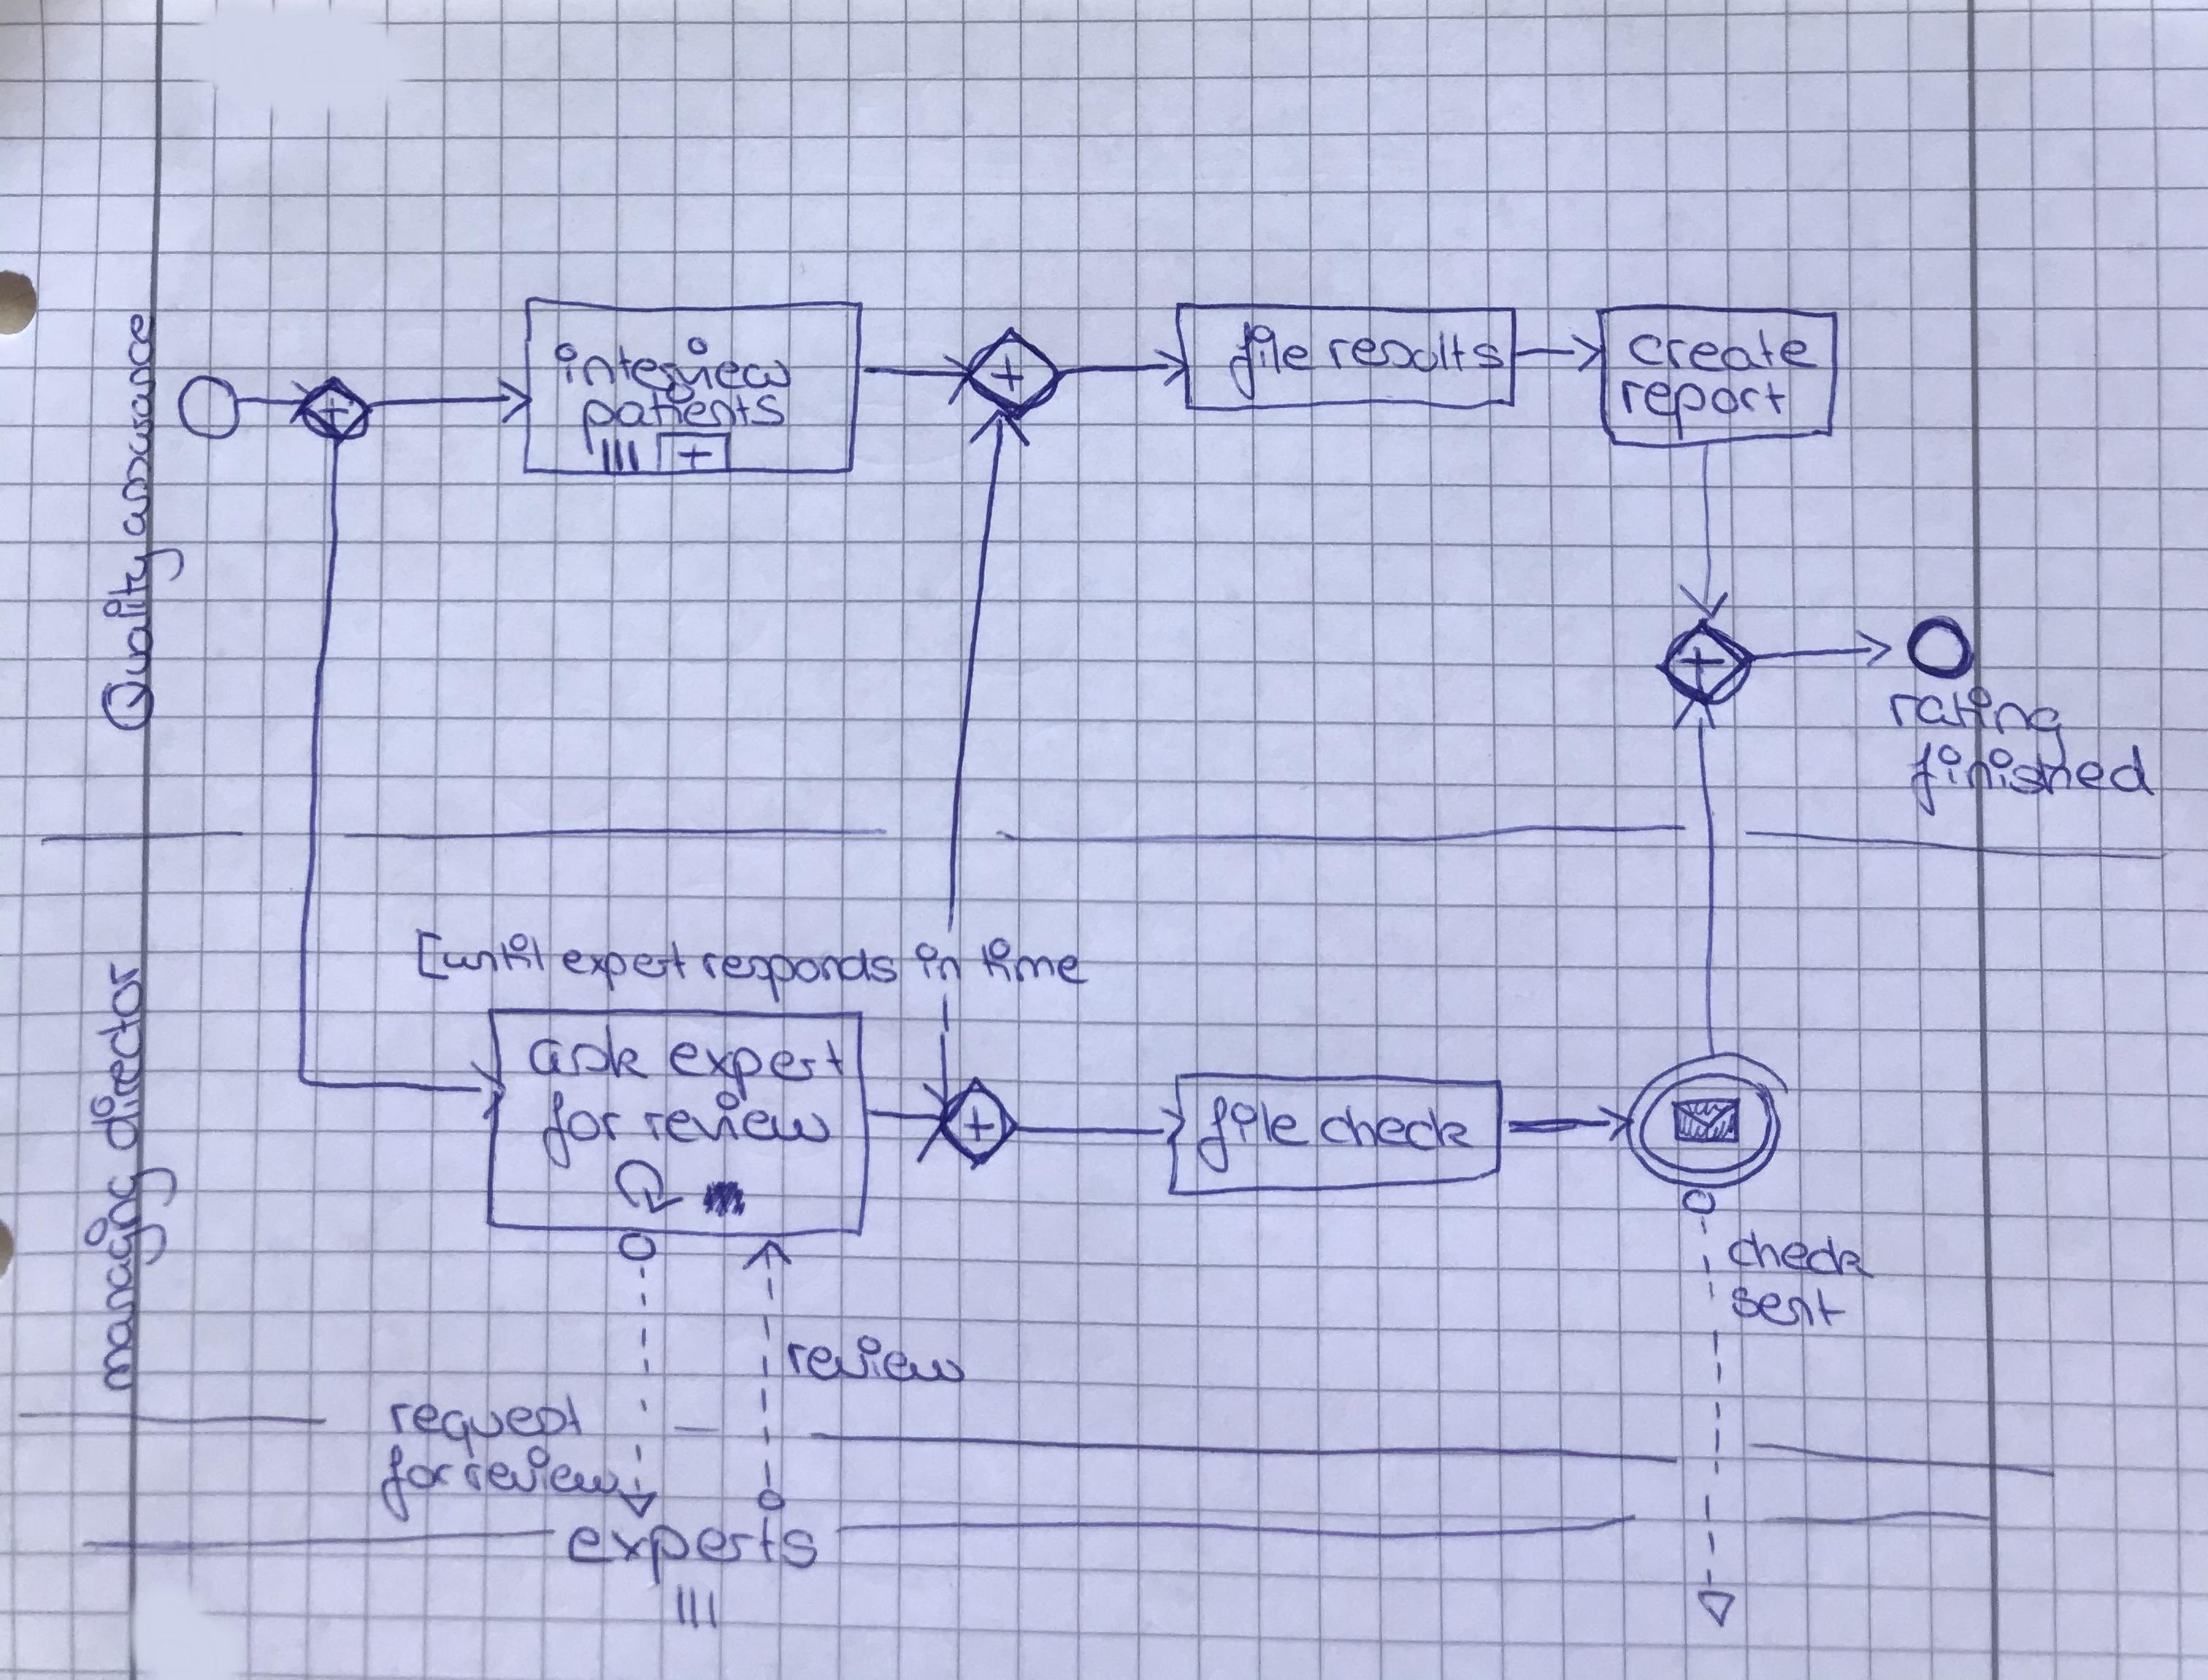 Quality assurance
interview
patients
file results
create
report
rating
finished
managing director
[until expert responds in time
ask expert
for review
file check
check
sent
review
request
for review
experts